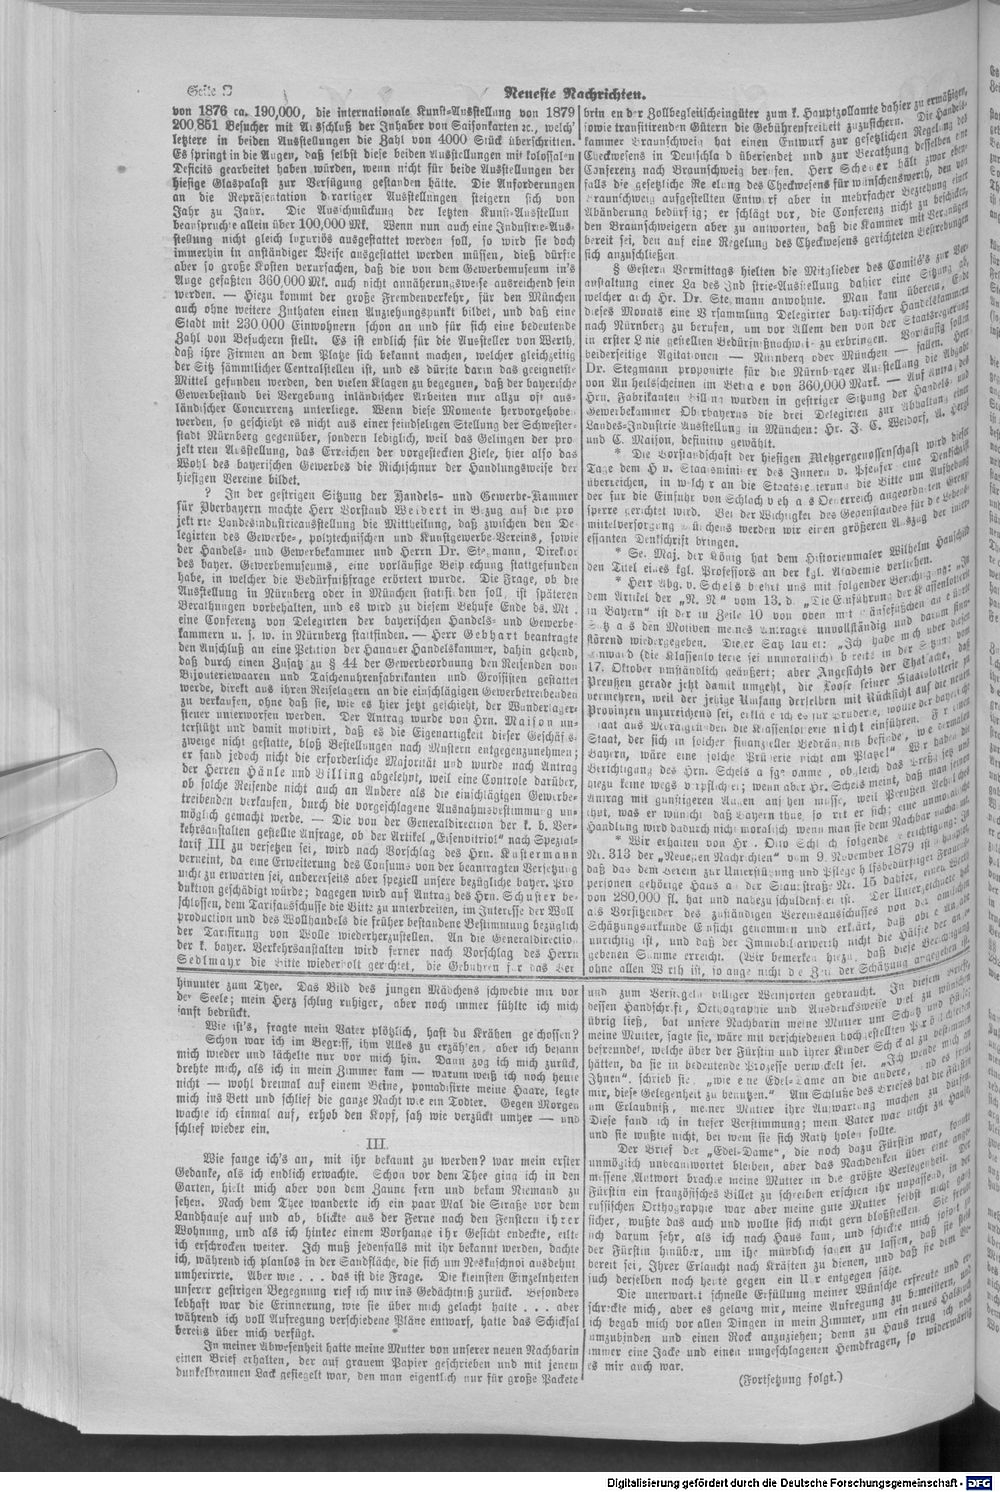 Seite 2
Neueste Nachrichten.
von 1876 ca. 190,000, die internationale Kunst-Ausstellung von 1879
200,851 Besucher mit Ausschluß der Inhaber von Saisonkarten ꝛc., welch'
letztere in beiden Ausstellungen die Zahl von 4000 Stück überschritten.
Es springt in die Augen, daß selbst diese beiden Ausstellungen mit kolossalen
Deficits gearbeitet haben würden, wenn nicht für beide Ausstellungen der
hiesige Glaspalast zur Verfügung gestanden hätte. Die Anforderungen
an die Repräsentation derartiger Ausstellungen steigern sich von
Jahr zu Jahr. Die Ausschmückung der letzten Kunst-Ausstellun
beanspruchte allein über 100,000 Mk. Wenn nun auch eine Industrie-Aus-
stellung nicht gleich luxuriös ausgestattet werden soll, so wird sie doch
immerhin in anständiger Weise ausgestattet werden müssen, dieß dürfte
aber so große Kosten verursachen, daß die von dem Gewerbemuseum in's
Auge gefaßten 360,000 Mk. auch nicht annäherungsweise ausreichend sein
werden. — Hiezu kommt der große Fremdenverkehr, für den München
auch ohne weitere Zuthaten einen Anziehungspunkt bildet, und daß eine
Stadt mit 230,000 Einwohnern schon an und für sich eine bedeutende
Zahl von Besuchern stellt. Es ist endlich für die Aussteller von Werth,
daß ihre Firmen an dem Platze sich bekannt machen, welcher gleichzeitig
der Sitz sämmtlicher Centralstellen ist, und es dürfte darin das geeignetste
Mittel gefunden werden, den vielen Klagen zu begegnen, daß der bayerische
Gewerbestand bei Vergebung inländischer Arbeiten nur allzu oft aus-
ländischer Concurrenz unterliege. Wenn diese Momente hervorgehoben
werden, so geschieht es nicht aus einer feindseligen Stellung der Schwester-
stadt Nürnberg gegenüber, sondern lediglich, weil das Gelingen der pro
jektirten Ausstellung, das Erreichen der vorgesteckten Ziele, hier also das
Wohl des bayerischen Gewerbes die Richtschnur der Handlungsweise der
hiesigen Vereine bildet.
? In der gestrigen Sitzung der Handels- und Gewerbe-Kammer
für Oberbayern machte Herr Vorstand Weidert in Bezug auf die pro
jektirte Landesindustrieausstellung die Mittheilung, daß zwischen den De-
legirten des Gewerbe-, polytechnischen und Kunstgewerbe-Vereins, sowie
der Handels- und Gewerbekammer und Herrn Dr. Stegmann, Direktor
des bayer. Gewerbemuseums, eine vorläufige Besprechung stattgefunden
habe, in welcher die Bedürfnißfrage erörtert wurde. Die Frage, ob die
Ausstellung in Nürnberg oder in München stattfinden soll, ist späteren
Berathungen vorbehalten, und es wird zu diesem Behufe Ende ds. Mt.
eine Conferenz von Delegirten der bayerischen Handels- und Gewerbe-
kammern u. s. w. in Nürnberg stattfinden. — Herr Gebhart beantragte
den Anschluß an eine Petition der Hanauer Handelskammer, dahin gehend,
daß durch einen Zusatz zu § 44 der Gewerbeordnung den Reisenden von
Bijouteriewaaren und Taschenuhrenfabrikanten und Grossisten gestattet
werde, direkt aus ihren Reiselagern an die einschlägigen Gewerbetreibenden
zu verkaufen, ohne daß sie, wie es hier jetzt geschieht, der Wanderlager-
steuer unterworfen werden. Der Antrag wurde von Hrn. Maison un-
terstützt und damit motivirt, daß es die Eigenartigkeit dieser Geschäfts-
zweige nicht gestatte, bloß Bestellungen nach Mustern entgegenzunehmen;
er fand jedoch nicht die erforderliche Majorität und wurde nach Antrag
der Herren Hänle und Billing abgelehnt, weil eine Controle darüber,
ob solche Reisende nicht auch an Andere als die einschlägigen Gewerbe-
treibenden verkaufen, durch die vorgeschlagene Ausnahmsbestimmung un-
möglich gemacht werde. — Die von der Generaldirection der k. b. Ver-
kehrsanstalten gestellte Anfrage, ob der Artikel „Eisenvitriol“ nach Spezial-
tarif III zu versetzen sei, wird nach Vorschlag des Hrn. Kustermann
verneint, da eine Erweiterung des Consums von der beantragten Versetzung
nicht zu erwarten sei, andererseits aber speziell unsere bezügliche bayer. Pro
duktion geschädigt würde; dagegen wird auf Antrag des Hrn. Schuster be-
schlossen, dem Tarifausschusse die Bitte zu unterbreiten, im Interesse der Woll
production und des Wollhandels die früher bestandene Bestimmung bezüglich
der Tarifirung von Wolle wiederherzustellen. An die Generaldirection
der k. bayer. Verkehrsanstalten wird ferner nach Vorschlag des Herrn
Sedlmayr die Bitte wiederholt gerichtet, die Gebühren für das Ver
bringen der Zollbegleitscheingüter zum k. Hauptzollamte dahier zu ermäßigen,
sowie transitirenden Gütern die Gebührenfreiheit zuzusichern. Die Handels-
kammer Braunschweig hat einen Entwurf zur gesetzlichen Regelung des
Checkwesens in Deutschland übersendet und zur Berathung desselben eine
Conferenz nach Braunschweig berufen. Herr Scheuer hält zwar eben-
falls die gesetzliche Regelung des Checkwesens für wünschenswerth, den von
Braunschweig aufgestellten Entwurf aber in mehrfacher Beziehung einer
Abänderung bedürftig; er schlägt vor, die Conferenz nicht zu beschicken,
den Braunschweigern aber zu antworten, daß die Kammer mit Vergnügen
bereit sei, den auf eine Regelung des Checkwesens gerichteten Bestrebungen
sich anzuschließen.
§ Gestern Vormittags hielten die Mitglieder des Comité's zur Ver-
anstaltung einer Landesindustrie-Ausstellung dahier eine Sitzung ab,
welcher auch Hr. Dr. Stegmann anwohnte. Man kam überein, Ende
dieses Monats eine Versammlung Delegirter bayerischer Handelskammern
nach Nürnberg zu berufen, um vor Allem den von der Staatsregierung
in erster Linie gestellten Bedürfnißnachweis zu erbringen. Vorläufig sollen
beiderseitige Agitationen — Nürnberg oder München — fallen. Herr
Dr. Stegmann proponirte für die Nürnberger Ausstellung die Abgabe
von Antheilscheinen im Betrage von 360,000 Mark. — Auf Antrag des
Hrn. Fabrikanten Billing wurden in gestriger Sitzung der Handels- und
Gewerbekammer Oberbayerns die drei Delegirten zur Abhaltung einer
Landes-Industrie Ausstellung in München: Hr. J. C. Weidert, A. Hergl
und C. Maison, definitiv gewählt.
* Die Vorstandschaft der hiesigen Metzgergenossenschaft wird dieser
Tage dem Hrn. Staatsminister des Innern v. Pfeufer eine Denkschrift
überreichen, in welcher an die Staatsregierung die Bitte um Aufhebung
der für die Einfuhr von Schlachtvieh aus Oesterreich angeordneten Grenz-
sperre gerichtet wird. Bei der Wichtigkeit des Gegenstandes für die Lebens-
mittelversorgung Münchens werden wir einen größeren Auszug der inter-
essanten Denkschrift bringen.
* Se. Maj. der König hat dem Historienmaler Wilhelm Hauschild
den Titel eines kgl. Professors an der kgl. Akademie verliehen.
* Herr Abg. v. Schels beehrt uns mit folgender Berichtigung: „In
dem Artikel der „N. N.“ vom 13. d. „Die Einführung der Klassenlotterie
in Bayern“ ist der in Zeile 10 von oben mit Gänsefüßchen angeführte
Satz aus den Motiven meines Antrages unvollständig und darum sinn-
störend wiedergegeben. Dieser Satz lautet: „Ich habe mich über diesen
Einwand (die Klassenlotterie sei unmoralisch) bereits in der Sitzung vom
17. Oktober umständlich geäußert; aber Angesichts der Thatsache, daß
Preußen gerade jetzt damit umgeht, die Loose seiner Staatslotterie zu
vermehren, weil der jetzige Umfang derselben mit Rücksicht auf die neuen
Provinzen unzureichend sei, erkläre ich es für Prüderie, wollte der bayerische
Staat aus Moralgründen die Klassenlotterie nicht einführen.
Staat, der sich in solcher finanzieller Bedrängniß befinde, wie dermalen
Bayern, wäre eine solche Prüderie nicht am Platze!“ Wir haben die
Berichtigung des Hrn. Schels aufgenommen, obgleich das Preßgesetz uns
hiezu keine wegs verpflichtet; wenn aber Hr. Schels meint, daß man seinen
Antrag mit günstigeren Augen ansehen müsse, weil Preußen Aehnliches
thut, was er wünscht daß Bayern thue, so irrt er sich; eine unmoralische
Handlung wird dadurch nicht moralisch, wenn man sie dem Nachbar nachahmt.
* Wir erhalten von Hrn. Otto Schloch folgende Berichtigung: In
Nr. 313 der „Neuesten Nachrichten“ vom 9. November 1879 ist behauptet,
daß das dem Verein zur Unterstützung und Pflege hilfsbedürftiger Frauens-
personen gehörige Haus an der Blutenstraße Nr. 15 dahier, einen Werth
von 280,000 fl. hat und nahezu schuldenfrei ist. Der Unterzeichnete hat
als Vorsitzender des zuständigen Vereinsausschusses von der amtlichen
Schätzungsurkunde Einsicht genommen und erklärt, daß obige Angabe
unrichtig ist, und daß der Immobiliarwerth nicht die Hälfte der ange-
gebenen Summe erreicht. (Wir bemerken hiezu, daß diese Berichtigung
ohne allen Werth ist, so lange nicht die Zeit der Schätzung angegeben ist.
hinunter zum Thee. Das Bild des jungen Mädchens schwebte mir vor
der Seele; mein Herz schlug ruhiger, aber noch immer fühlte ich mich
sanft bedrückt.
Wie ist's, fragte mein Vater plötzlich, hast du Krähen geschossen?
Schon war ich im Begriff, ihm Alles zu erzählen, aber ich besann
mich wieder und lächelte nur vor mich hin. Dann zog ich mich zurück,
drehte mich, als ich in mein Zimmer kam — warum weiß ich noch heute
nicht — wohl dreimal auf einem Beine, pomadisirte meine Haare, legte
mich ins Bett und schlief die ganze Nacht wie ein Todter. Gegen Morgen
wachte ich einmal auf, erhob den Kopf, sah wie verzückt umher — und
schlief wieder ein.
III.
Wie fange ich's an, mit ihr bekannt zu werden? war mein erster
Gedanke, als ich endlich erwachte. Schon vor dem Thee ging ich in den
Garten, hielt mich aber von dem Zaune fern und bekam Niemand zu
sehen. Nach dem Thee wanderte ich ein paar Mal die Straße vor dem
Landhause auf und ab, blickte aus der Ferne nach den Fenstern ihrer
Wohnung, und als ich hinter einem Vorhange ihr Gesicht endeckte, eilte
ich erschrocken weiter. Ich muß jedenfalls mit ihr bekannt werden, dachte
ich, während ich planlos in der Sandfläche, die sich um Neskuschnoi ausdehnt
umherirrte. Aber wie . . . das ist die Frage. Die kleinsten Einzelnheiten
unserer gestrigen Begegnung rief ich mir ins Gedächtniß zurück. Besonders
lebhaft war die Erinnerung, wie sie über mich gelacht hatte . . . aber
während ich voll Aufregung verschiedene Pläne entwarf, hatte das Schicksal
bereits über mich verfügt.
In meiner Abwesenheit hatte meine Mutter von unserer neuen Nachbarin
einen Brief erhalten, der auf grauem Papier geschrieben und mit jenem
dunkelbraunen Lack gesiegelt war, den man eigentlich nur für große Packete
und zum Versiegeln billiger Weinsorten gebraucht. In diesem Briefe,
dessen Handschrift, Orthographie und Ausdrucksweise viel zu wünschen
übrig ließ, bat unsere Nachbarin meine Mutter um Schutz und Hülfe;
meine Mutter, sagte sie, wäre mit verschiedenen hochgestellten Persönlichkeiten
befreundet, welche über der Fürstin und ihrer Kinder Schicksal zu bestimmen
hätten, da sie in bedeutende Prozesse verwickelt sei. „Ich wende mich an
Ihnen“, schrieb sie, „wie eine Edel-Dame an die andere, und es freut
mir, diese Gelegenheit zu benutzen.“ Am Schlusse des Briefes bat die Fürstin
um Erlaubniß, meiner Mutter ihre Aufwartung machen zu dürfen.
Diese fand ich in tiefer Verstimmung; mein Vater war nicht zu Hause,
und sie wußte nicht, bei wem sie sich Rath holen sollte.
Der Brief der „Edel-Dame“, die noch dazu Fürstin war, konnte
unmöglich unbeantwortet bleiben, aber das Nachdenken über eine ange-
messene Antwort brachte meine Mutter in die größte Verlegenheit. Der
Fürstin ein französisches Billet zu schreiben erschien ihr unpassend, in der
russischen Orthographie war aber meine gute Mutter selbst nicht ganz
sicher, wußte das auch und wollte sich nicht gern bloßstellen. Sie freute
sich darum sehr, als ich nach Haus kam, und schickte mich sofort zu
der Fürstin hinüber, um ihr mündlich sagen zu lassen, daß sie stets
bereit sei, Ihrer Erlaucht nach Kräften zu dienen, und daß sie dem Be-
such derselben noch heute gegen ein Uhr entgegen sähe.
Die unerwartet schnelle Erfüllung meiner Wünsche erfreute und er-
schreckte mich, aber es gelang mir, meine Aufregung zu bemeistern, und
ich begab mich vor allen Dingen in mein Zimmer, um ein neues Halstuch
umzubinden und einen Rock anzuziehen; denn zu Haus trug ich noch
immer eine Jacke und einen umgeschlagenen Hemdkragen, so widerwärtig
es mir auch war.
(Fortsetzung folgt.)
Digitalisierung gefördert durch die Deutsche Forschungsgemeinschaft - DFG